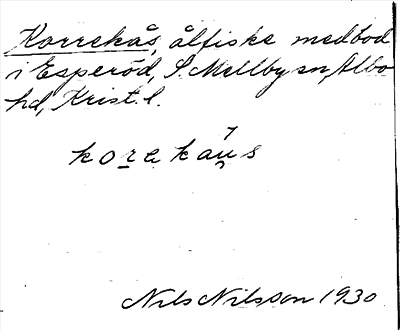 Korrekås, ålfiske med bod
i Esperöd, S. Mellby sn, Albo
hd, Krist. l.
korekaus
Nils Nilsson 1930